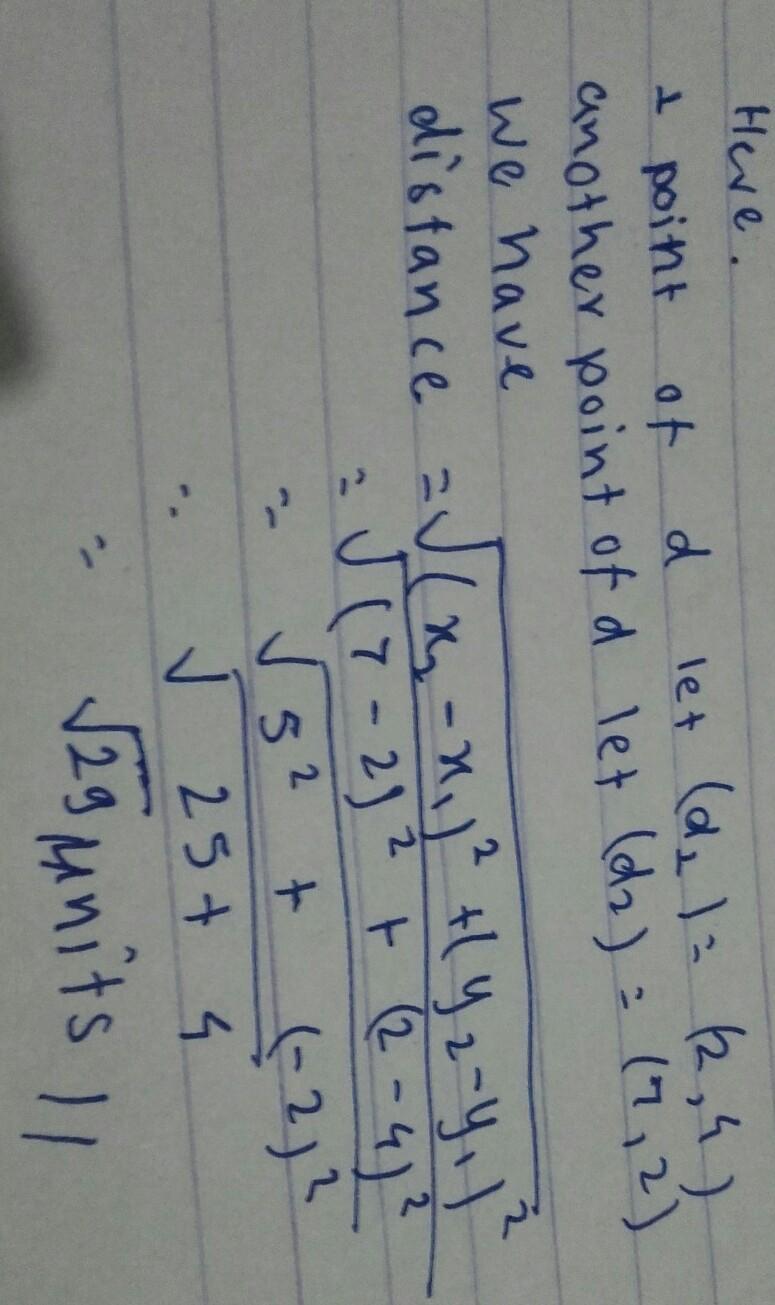 Here.
1 point of d let (d₁) = (2,4)
another point of d let (d₂) = (7,2)
We have
distance = √(x₂ - x₁)² + (y₂ - y₁)²
= √(7 - 2)² + (2 - 4)²
= √5² + (-2)²
= √25 + 4
= √29 units //